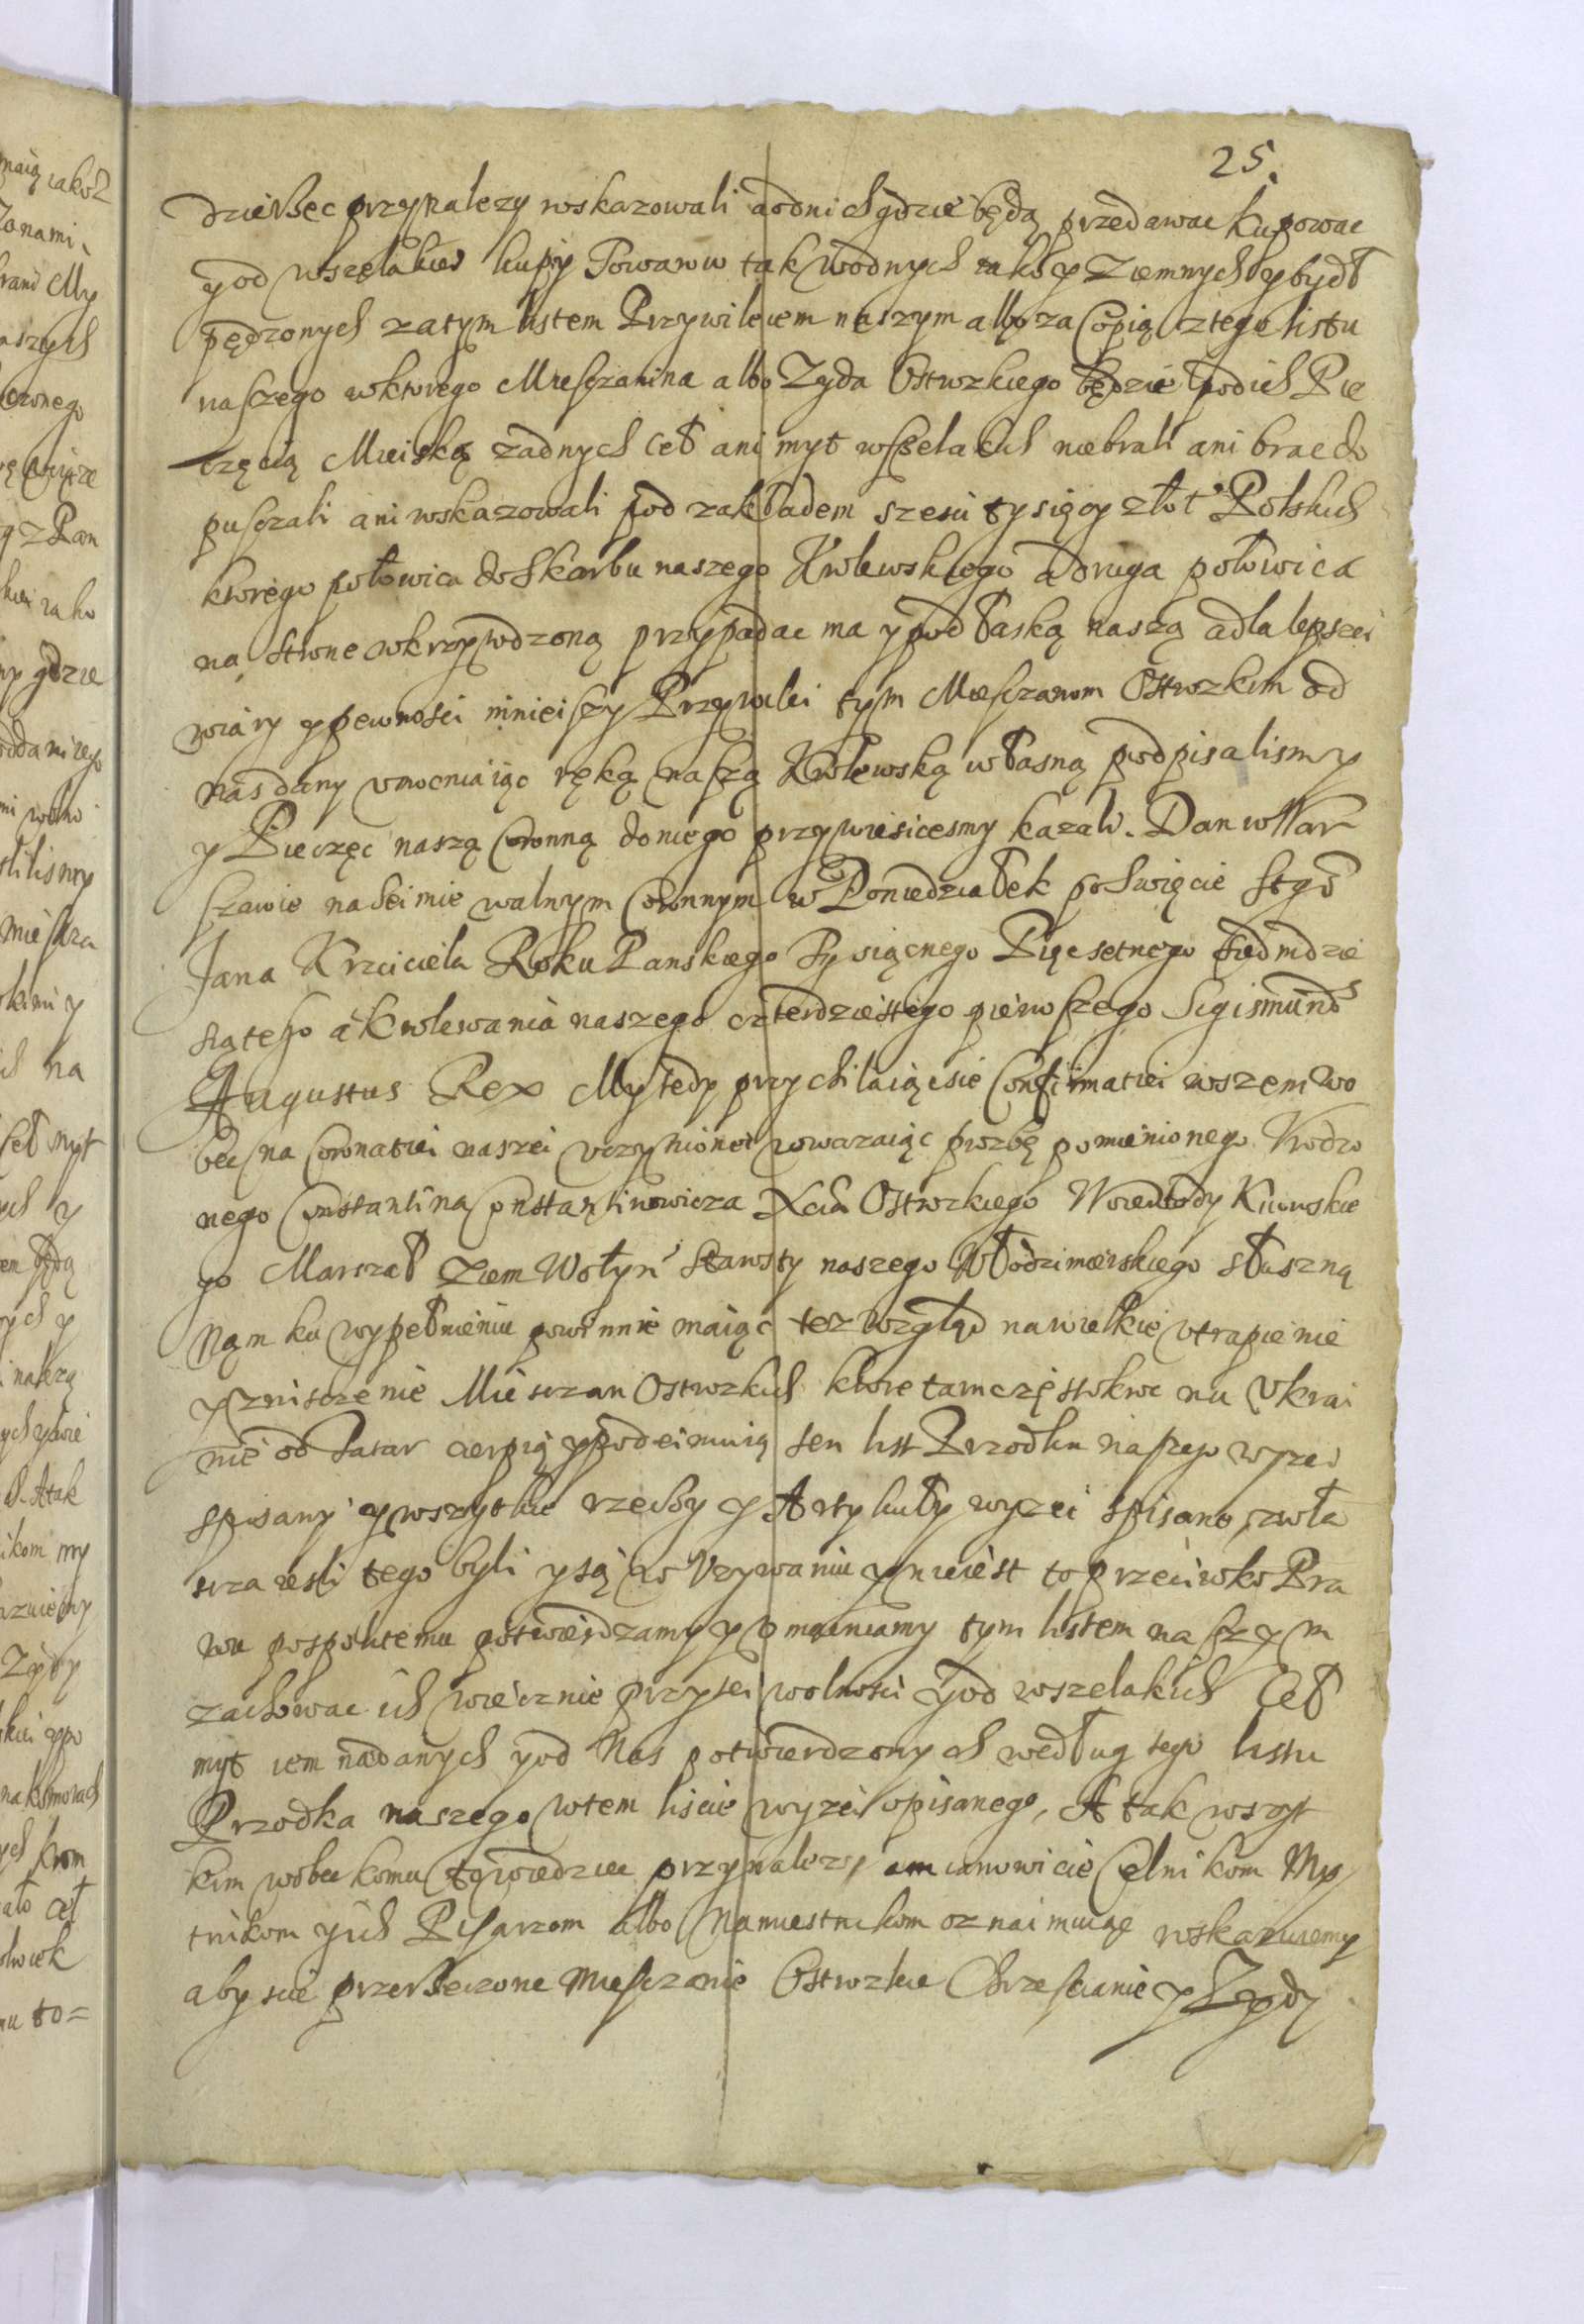 25.
dzierzec przynalezy wskazowali a od nich gdzie będą przedawac kupowac
y od wszelakiei kupy Towarow tak wodnych iako y ziemnych y bydł
pędzonych za tym listem Przywileiem naszym albo za Copią z tego listu
naszego u ktorego Miesczanina albo Zyda Ostrozkiego będzie pod ich Pie
częcią Mieiską zadnych ceł ani myt wszelakich nie brali ani brac do
pusczali ani wskazowali pod zakładem szesci tysięcy złot Polskich
ktorego połowica do Skarbu naszego Krolewskiego a druga połowica
na strone ukrzywdzoną przypadac ma y pod łaską naszą a dla lepszei
wiary y pewnosci mnieiszy Przywilei tym Miesczanom Ostrozkim od
nas dany umocniaiąc ręką naszą Krolewską własną podpisalismy
y Pieczęc naszą Coronną do niego przywiesicesmy kazali. Dan w War
szawie na Seimie walnym Coronnym w Poniedziałek po Swięcie Stgo
Jana Krzciciela Roku Panskiego Tysiącnego Pięcsetnego siedmdzie
siątego a Krolewania naszego czterdziestego pierwszego Sigismunds
Augustus Rex My tedy przychilaiąc sie Confirmatiei wszem wo
bec na Coronatiei naszei uczynionei uwazaiąc prozbę pomienionego Urodzo
nego Constantina Constantinowicza Xcia Ostrozkiego Woiewody Kiiowskie
go Marszał Ziem Wołyn Starosty naszego Włodzimierskiego słuszną
Nąm ku wypełnieniu powinnie maiąc tez wzgląd na wielkie utrapienie
y zniszczenie Miesczan Ostrozkich ktore tam częstokroc na Ukrai
nie od Tatar cierpią y podeimuią ten list Przodku naszego wyzei
spisany y wszytkie rzeczy y Artykuły wyzei spisane, zwła
scza iesli tego byli y są w Uzywaniu y nieiest to przeciwko Pra
wu pospolitemu potwierdzamy y umacniamy tym listem naszym
zachowac ich wiecznie przy tei wolnosci y od wszelakich Ceł
myt iem nadanych y od Nas potwierdzonych według tego listu
Przodka naszego w tem liscie wyzei opisanego, A tak wszyt
kim wobec komu to wiedziec przynalezy, a mianowicie Celnikom My
tnikom y ich Pisarzom albo Namiestnikom oznaimuięc wskazuiemy
aby scie przerzeczone Miesczanie Ostrozkie Chrzescianie y Zydy